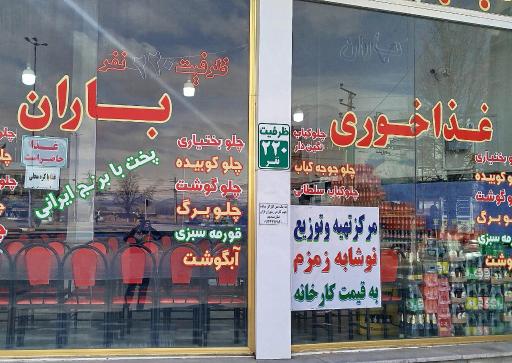 ظرفیت ۲۲۰ نفر
باران
غذا
حاضر است
پخت با برنج ایرانی
چلو بختیاری
چلو کوبیده
چلو گوشت
چلو برگ
قورمه سبزی
آبگوشت
ظرفیت
۲۲۰
نفر
غذاخوری
چلوکباب
نگین دار
چلو جوجه کباب
چلوکباب سلطانی
بختیاری
چلو کوبیده
چلو گوشت
چلو برگ
قورمه سبزی
مرکز تهیه و توزیع
نوشابه زمزم
به قیمت کارخانه